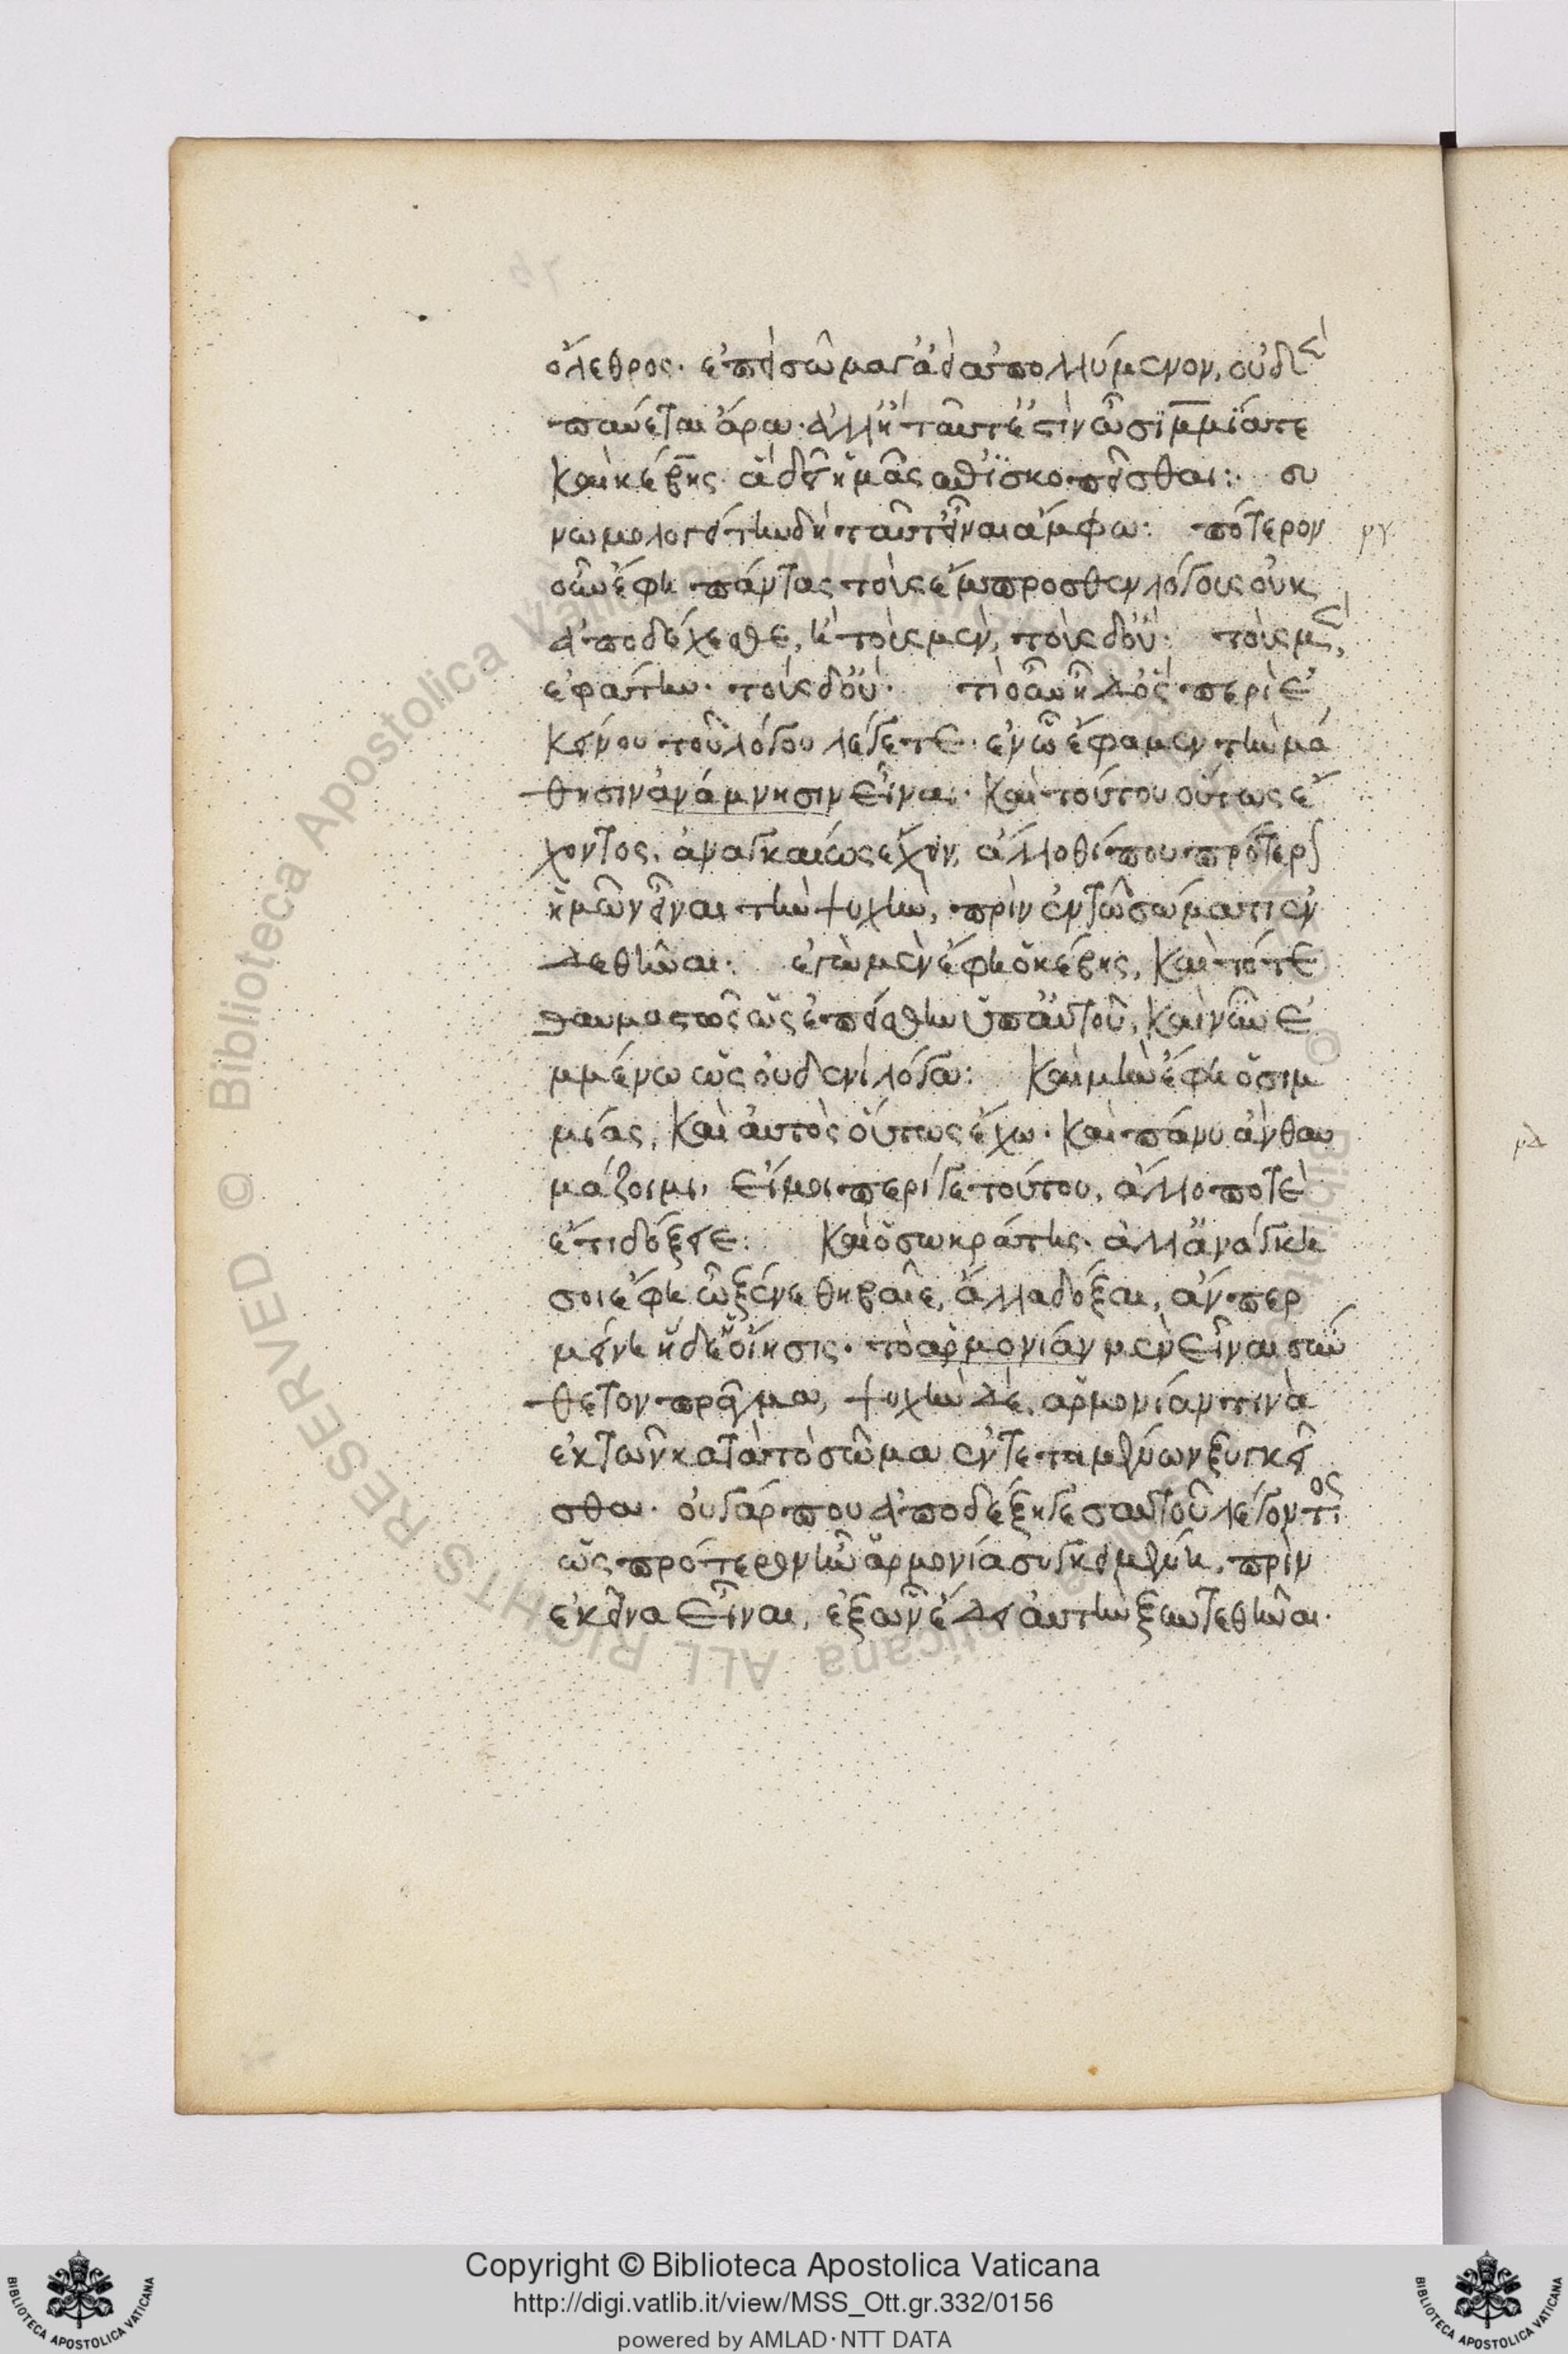 ὄλεθρος· ἐπεὶ σῶμα γ' ἀεὶ ἀπολλύμενον, οὐδὲν
παύεται ἄρα· ἀλλ' ἢ ταῦτ' ἐστὶν ὦ σιμμία τε
καὶ κέβης ἃ δεῖ ἡμᾶς ἐπισκοπεῖσθαι: συ
νωμολογείτην δὴ ταῦτ' εἶναι ἄμφω: πότερον
οὖν ἔφη πάντας τοὺς ἔμπροσθεν λόγους οὐκ
ἀποδέχεσθε, ἢ τοὺς μὲν, τοὺς δ' οὔ: τοὺς μὲν,
ἐφάτην· τοὺς δ' οὔ· τί οὖν ἦ δ' ὃς περὶ ἐ
κείνου τοῦ λόγου λέγετε· ἐν ᾧ ἔφαμεν τὴν μά
θησιν ἀνάμνησιν εἶναι· καὶ τούτου οὕτως ἔ
χοντος, ἀναγκαίως ἔχειν, ἄλλοθί που πρότερον
ἡμῶν εἶναι τὴν ψυχὴν, πρὶν ἐν τῶ σώματι ἐν
δεθῆναι: ἐγὼ μὲν ἔφη ὁ κέβης, καὶ τότε
θαυμαστῶς ὡς ἐπείσθην ὑπ' αὐτοῦ, καὶ νῦν ἐ
μμένω ὡς οὐδενὶ λόγω: καὶ μὴν ἔφη ὁ σιμ
μίας, καὶ αὐτὸς οὕτως ἔχω· καὶ πάνυ ἂν θαυ
μάζοιμι, εἴ μοι περί γε τούτου, ἄλλο ποτὲ
ἔτι δόξειε: καὶ ὁ σωκράτης· ἀλλ' ἀνάγκη
σοι ἔφη ὦ ξένε θηβαῖε, ἄλλα δόξαι, ἄν περ
μείνη ἥδε ἡ οἴησις· τὸ ἁρμονίαν μὲν εἶναι σύν
θετον πρᾶγμα, ψυχὴν δὲ, ἁρμονίαν τινὰ
ἐκ τῶν κατὰ τὸ σῶμα ἐντεταμένων ξυγκεῖ
σθαι· οὐ γάρ που ἀποδέξη γε σαυτοῦ λέγοντος
ὡς πρότερον ἦν ἁρμονία συγκειμένη, πρὶν
ἐκεῖνα εἶναι, ἐξ ὧν ἔδει αὐτὴν ξυντεθῆναι·
μγ
μδ
Copyright © Biblioteca Apostolica Vaticana
http://digi.vatlib.it/view/MSS_Ott.gr.332/0156
powered by AMLAD·NTT DATA
BIBLIOTECA APOSTOLICA VATICANA
BIBLIOTECA APOSTOLICA VATICANA
© Biblioteca Apostolica Vaticana ALL RIGHTS RESERVED